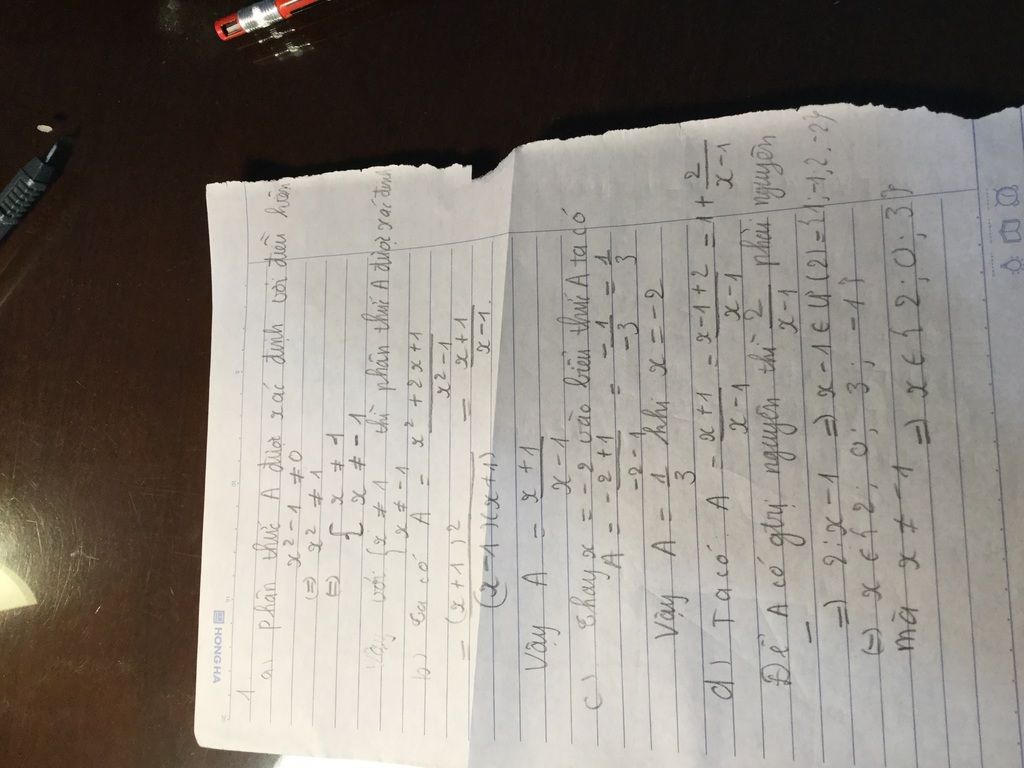 HONG HA
1
a) phân thức A được xác định với điều kiện
x² - 1 ≠ 0
(=) x² ≠ 1
(=) { x ≠ 1
x ≠ -1
Vậy với { x ≠ 1 thì phân thức A được xác định
x ≠ -1
b) Ta có A = x² + 2x + 1 / x² - 1
= (x + 1)² / (x - 1)(x + 1) = x + 1 / x - 1
Vậy A = x + 1 / x - 1
c) Thay x = -2 vào biểu thức A ta có
A = -2 + 1 / -2 - 1 = -1 / -3 = 1 / 3
Vậy A = 1 / 3 khi x = -2
d) Ta có A = x + 1 / x - 1 = x - 1 + 2 / x - 1 = 1 + 2 / x - 1
Để A có gtrị nguyên thì 2 / x - 1 phải nguyên
=) 2 ⋮ x - 1 =) x - 1 ∈ Ư(2) = {1; -1; 2; -2}
(=) x ∈ { 2; 0; 3; -1 }
mà x ≠ -1 =) x ∈ { 2; 0; 3 }